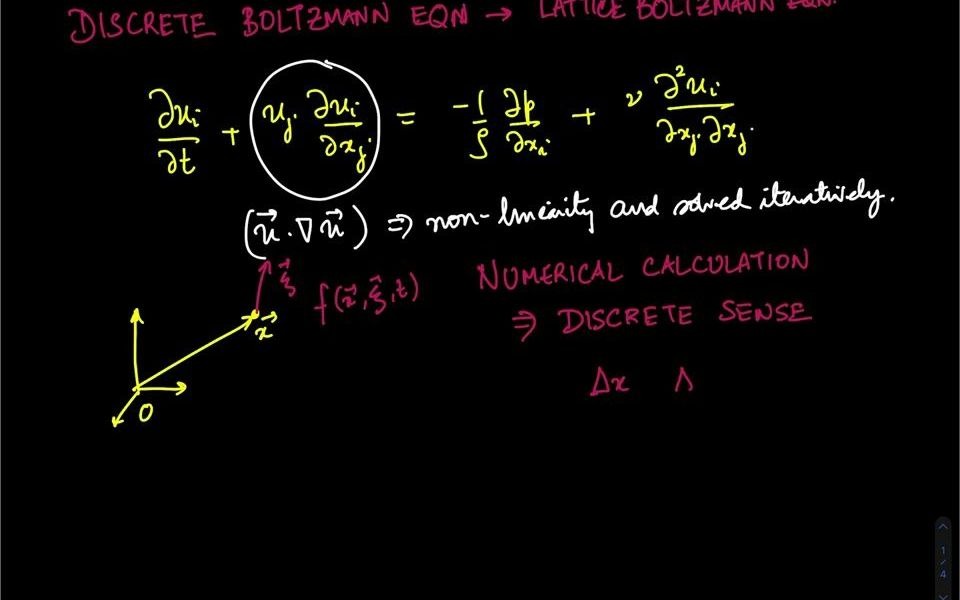 DISCRETE BOLTZMANN EQN → LATTICE BOLTZMANN EQN.
∂uᵢ/∂t + uⱼ ∂uᵢ/∂xⱼ = -1/ρ ∂p/∂xᵢ + ν ∂²uᵢ/∂xⱼ∂xⱼ
(u⃗ · ∇u⃗) ⇒ non-linearity and solved iteratively.
ξ⃗ f(x⃗, ξ⃗, t)
x⃗
O
NUMERICAL CALCULATION
⇒ DISCRETE SENSE
Δx Λ
1/4